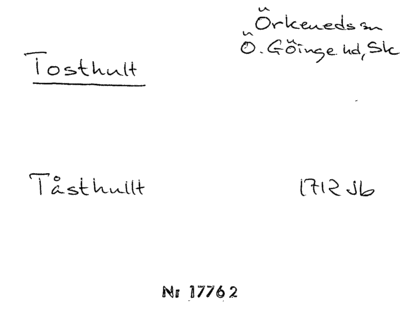 Örkeneds sn
Ö. Göinge hd, Sk
Tosthult
Tåsthullt 1712 Jb
Nr 17762